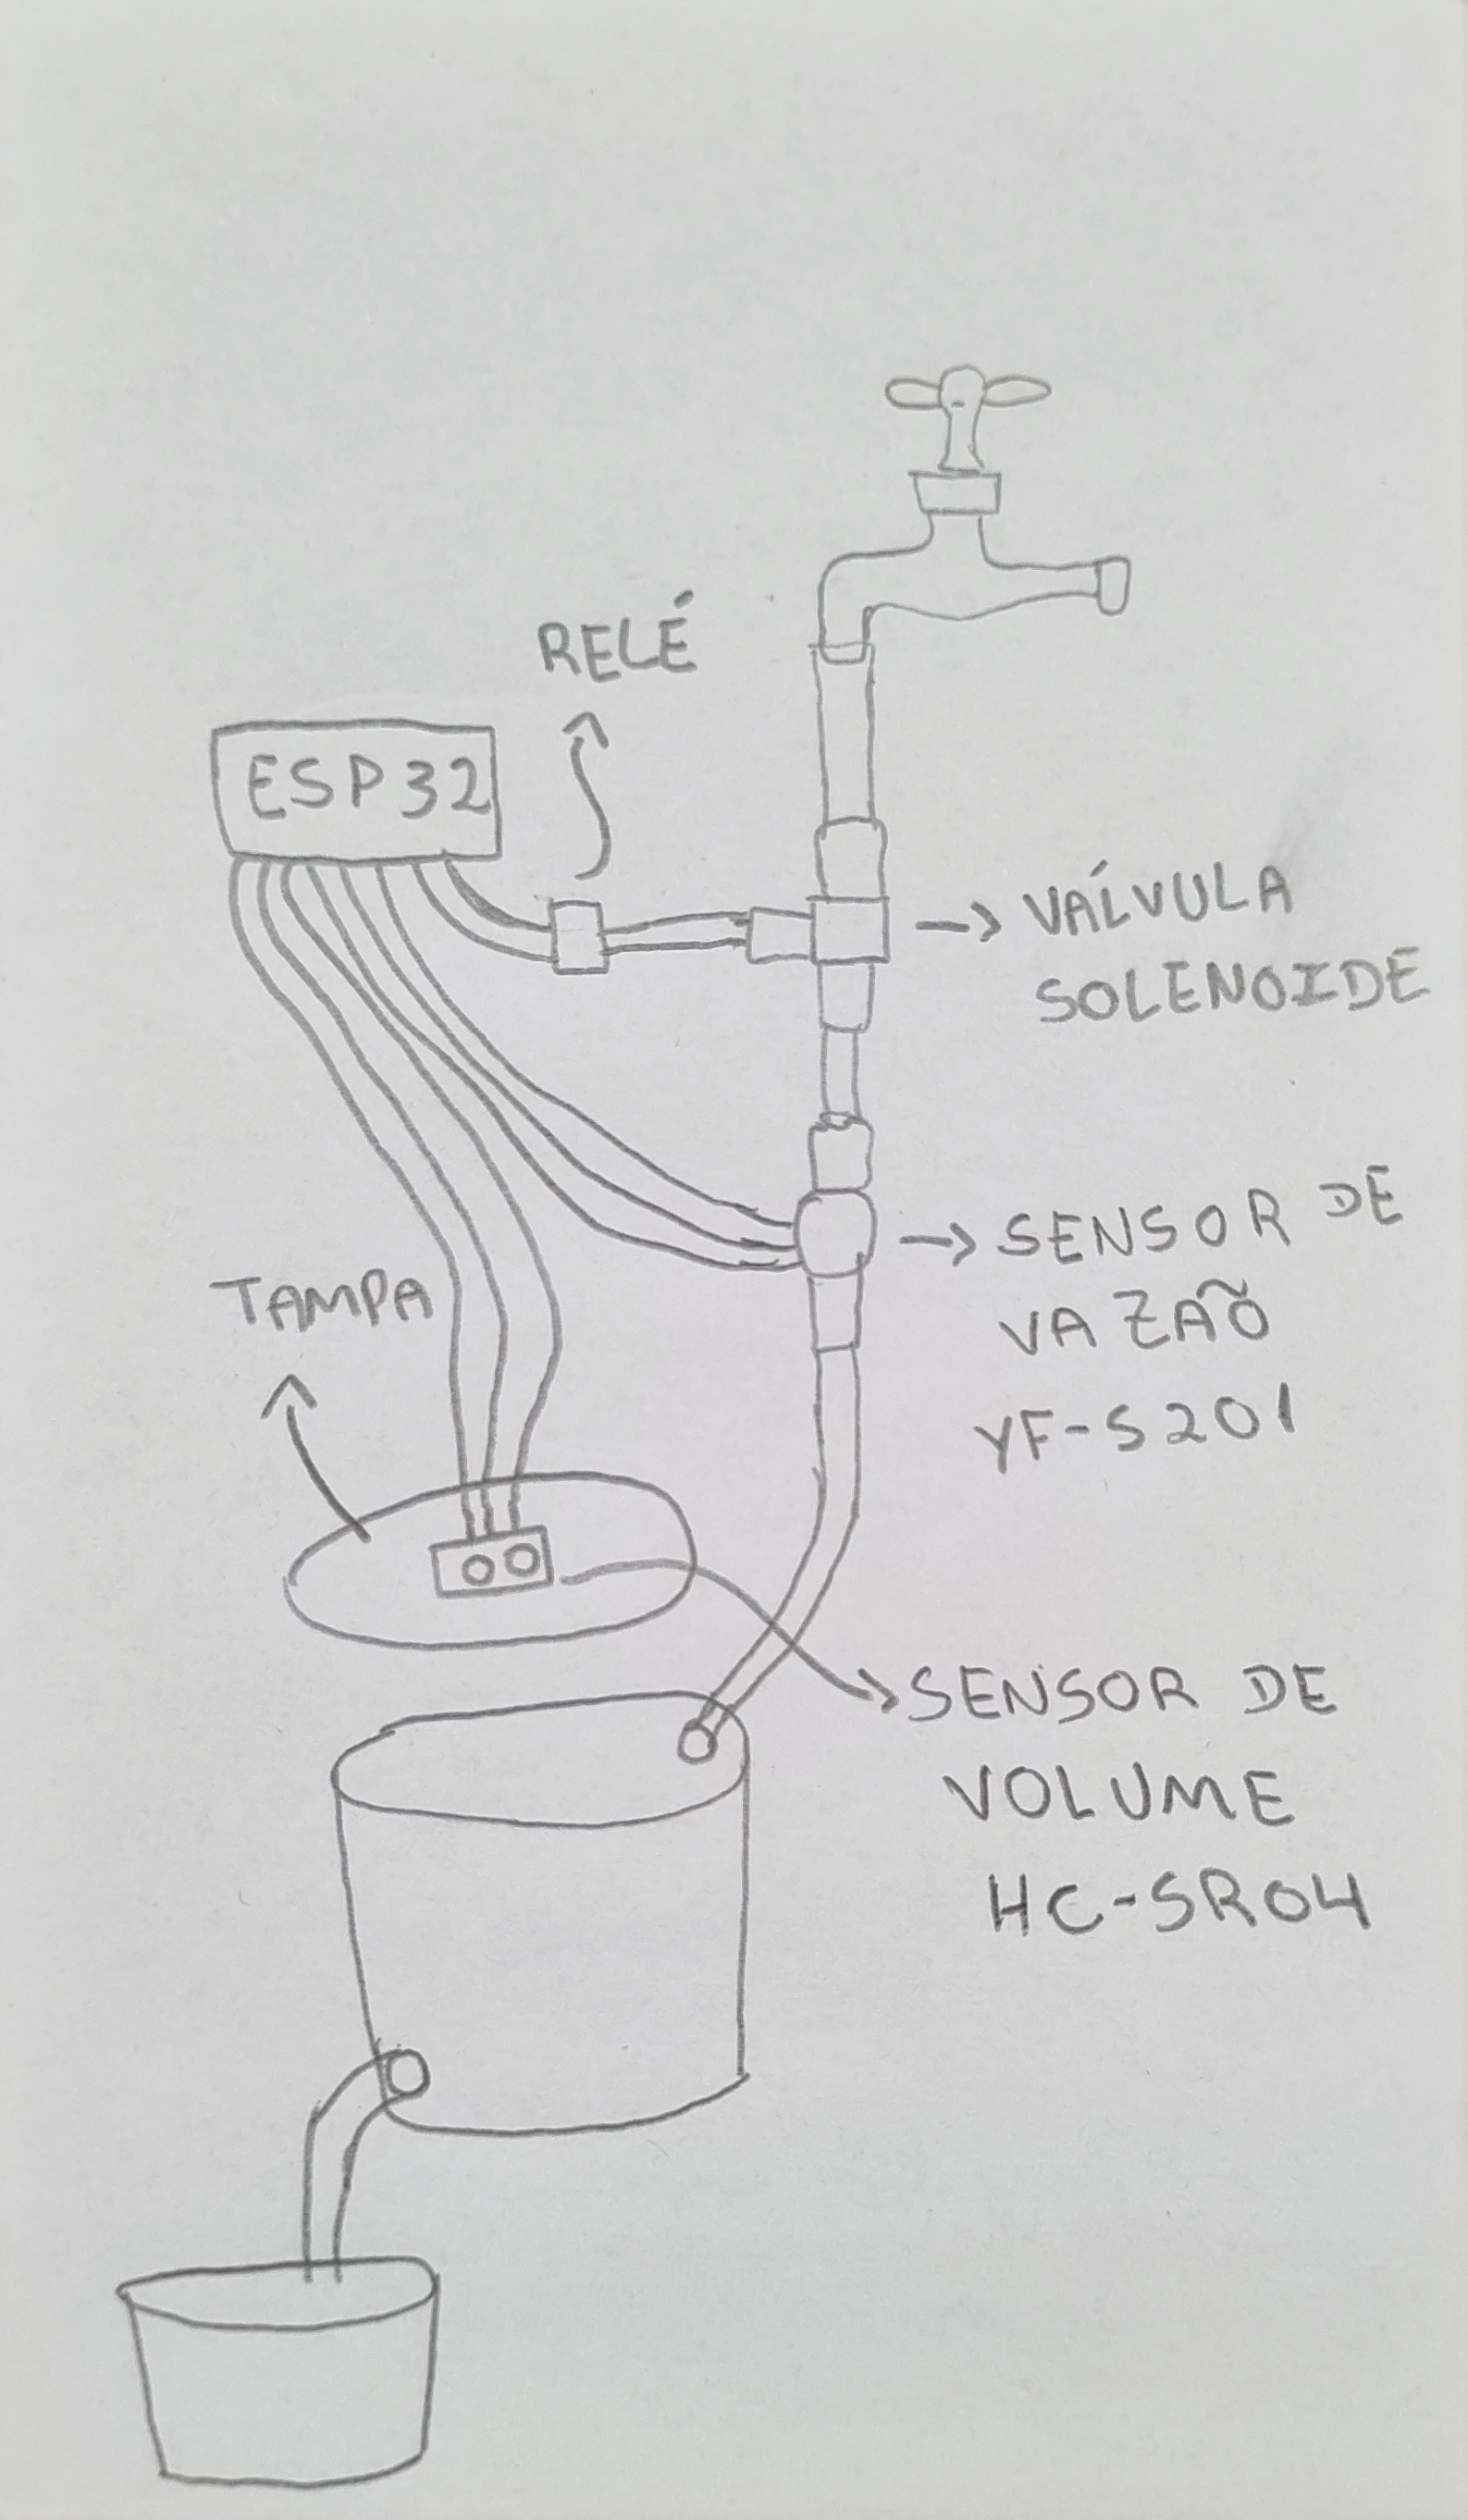 RELÉ
ESP32
VÁLVULA
SOLENOIDE
SENSOR DE
VAZÃO
YF-S201
TAMPA
SENSOR DE
VOLUME
HC-SR04